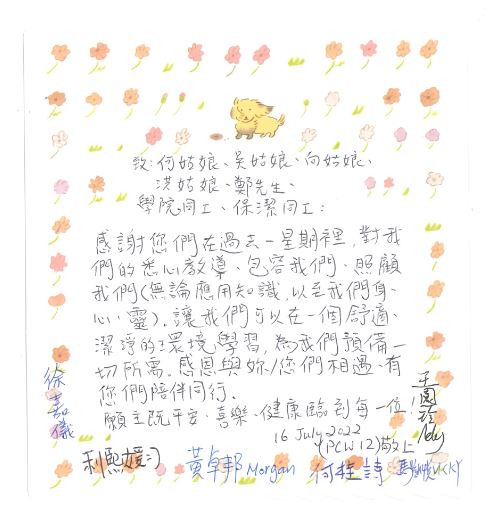 致:何姑娘、吳姑娘、向姑娘、
洪姑娘、鄭先生、
學院同工、保潔同工:
感謝您們在過去一星期裡,對我
們的悉心教導、包容我們、照顧
我們(無論應用知識,以至我們身、
心、靈)。讓我們可以在一個舒適、
潔淨的環境學習,為我們預備一
切所需。感恩與妳/您們相遇、有
您們陪伴同行。
願主既平安、喜樂、健康臨到每一位!
16 July 2022
(PCW 12)敬上
徐嘉儀
利熙媛:)
黃卓邦 Morgan